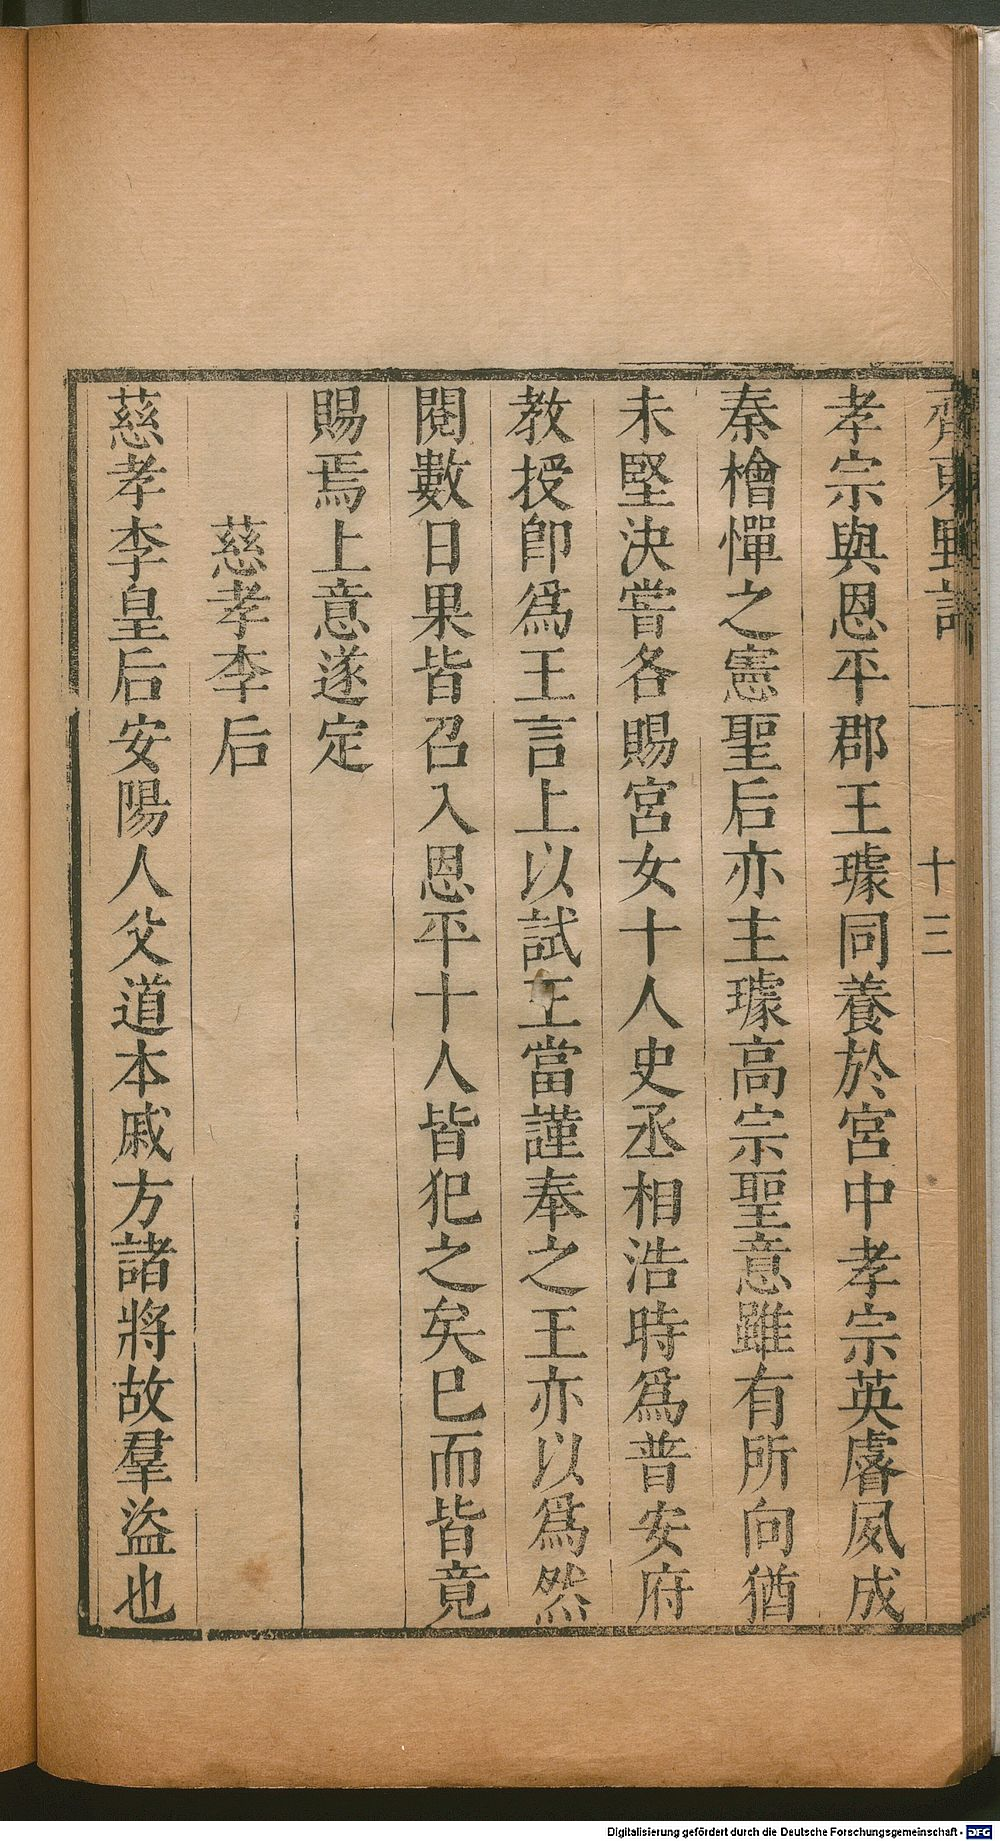 齊東野語
十三
孝宗與恩平郡王璩同養於宮中孝宗英睿夙成
秦檜憚之憲聖后亦主璩高宗聖意雖有所向猶
未堅決嘗各賜宮女十人史丞相浩時爲普安府
教授卽爲王言上以試王當謹奉之王亦以爲然
閱數日果皆召入恩平十人皆犯之矣巳而皆竟
賜焉上意遂定
慈孝李后
慈孝李皇后安陽人父道本戚方諸將故羣盜也
Digitalisierung gefördert durch die Deutsche Forschungsgemeinschaft - DFG